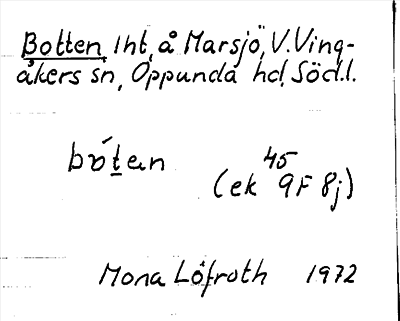 Botten, lht, å Marsjö, V. Ving-
åkers sn, Oppunda hd, Södl.
bóten
45
(ek 9F 8j)
Mona Löfroth 1972